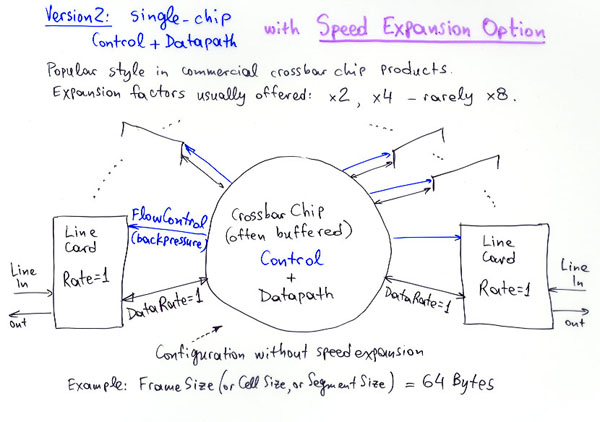 Version2: single-chip
Control + Datapath
with Speed Expansion Option
Popular style in commercial crossbar chip products.
Expansion factors usually offered: x2, x4 – rarely x8.
FlowControl
(backpressure)
Crossbar Chip
(often buffered)
Control
+
Datapath
Line
Card
Rate=1
Line
In
out
DataRate=1
DataRate=1
Line
Card
Rate=1
Line
In
out
Configuration without speed expansion
Example: Frame Size (or Cell Size, or Segment Size) = 64 Bytes